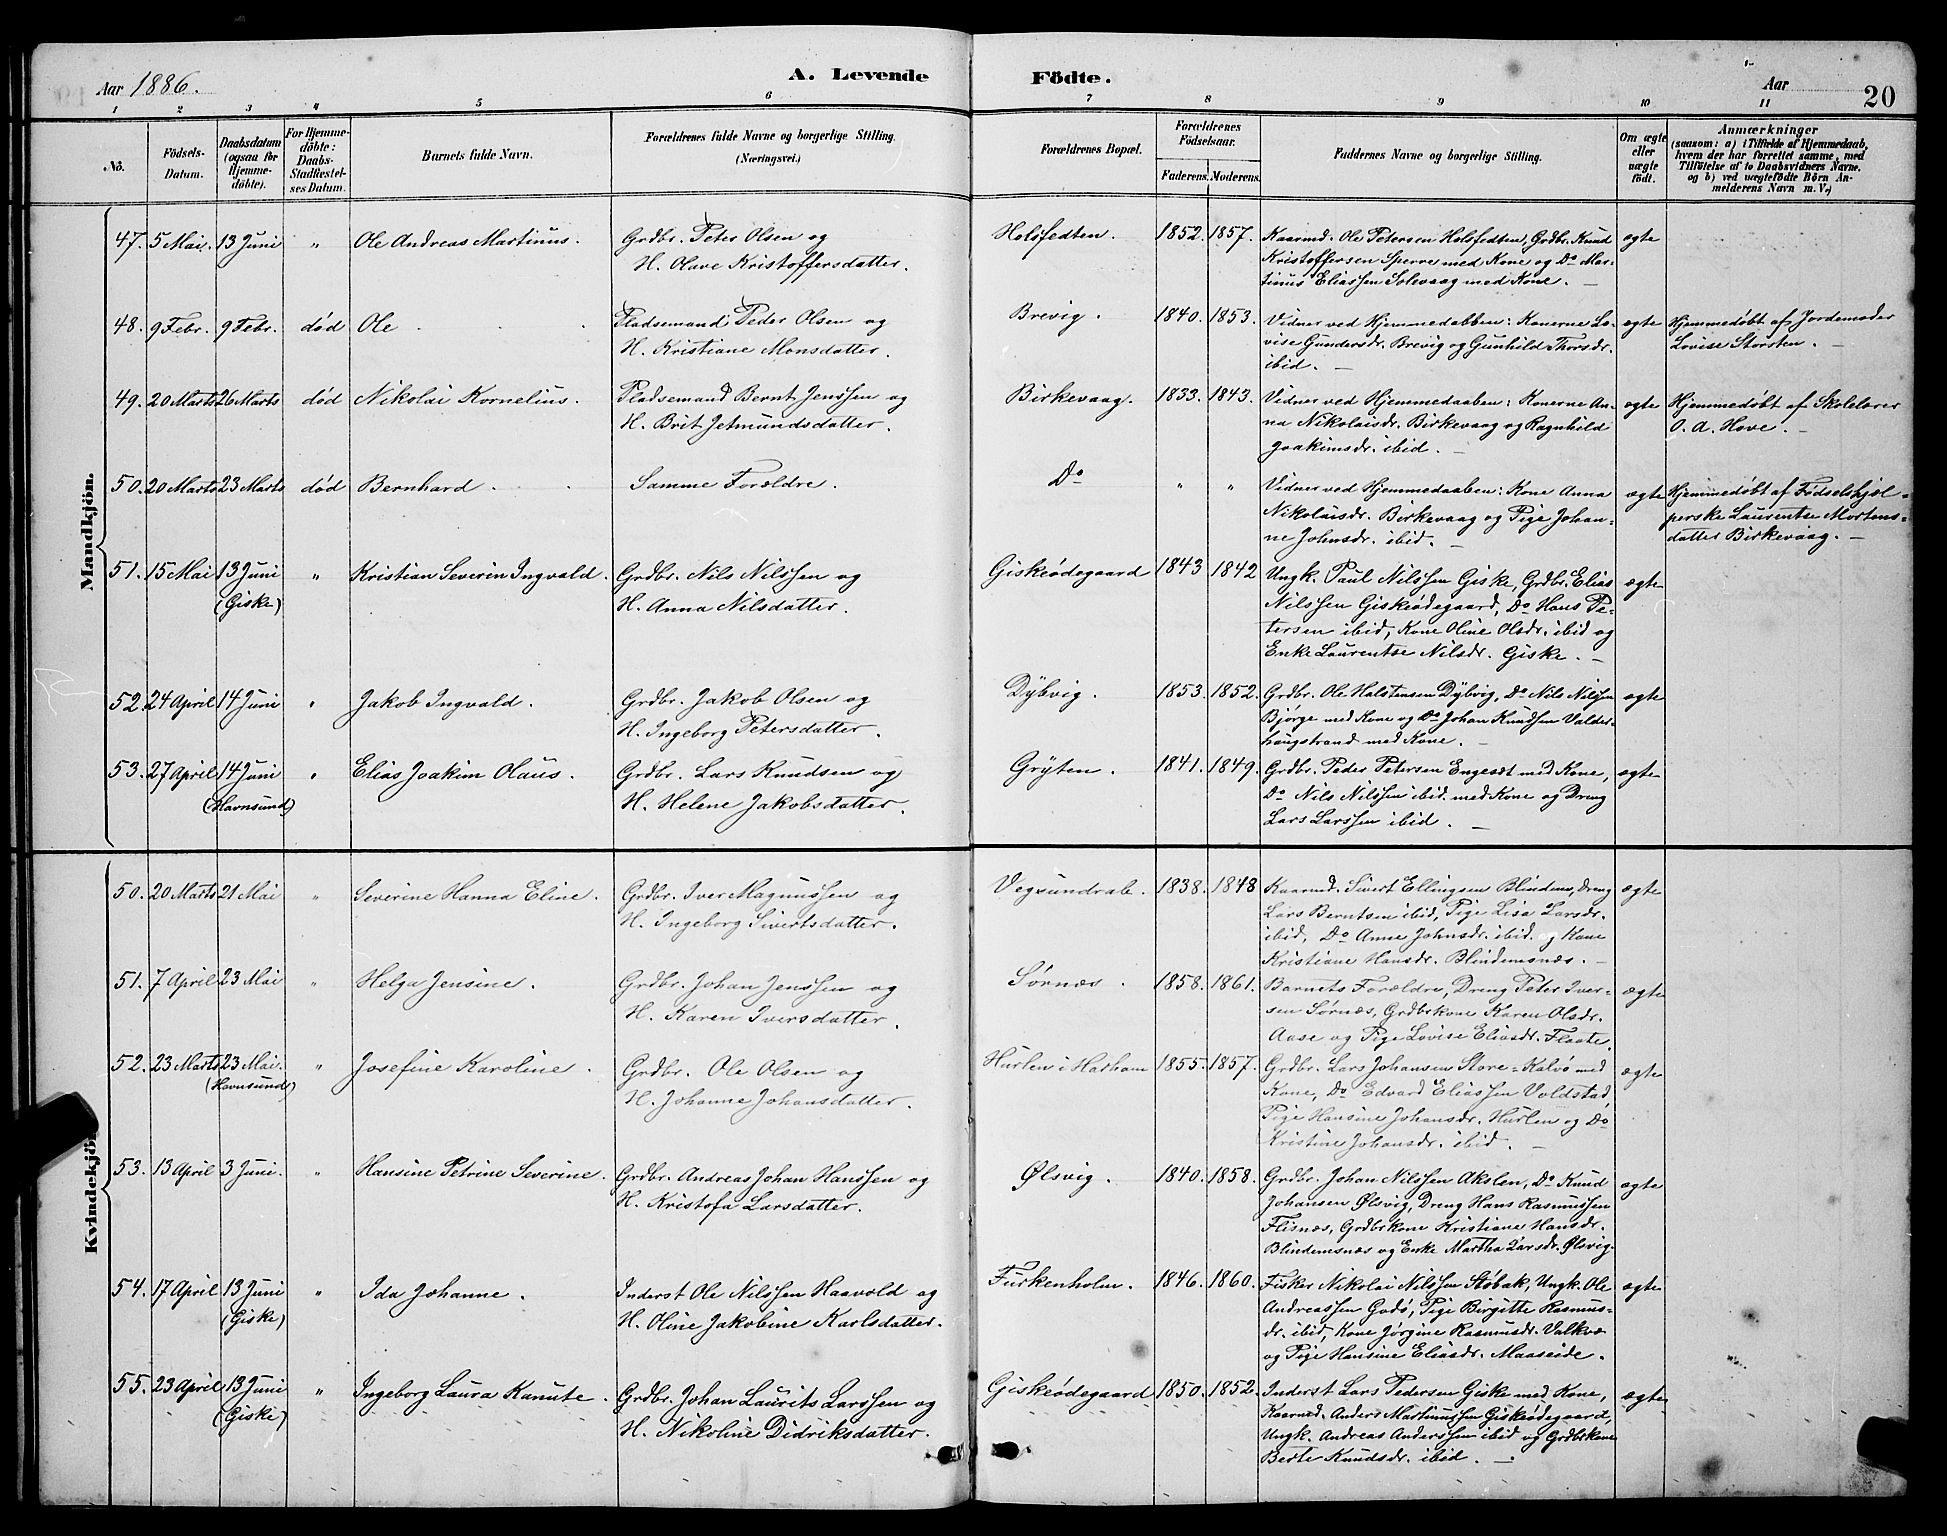 Aar 1886.
A. Levende Födte.
Aar
20
1 2 3 4 5 6 7 8 9 10 11
No.
Födsels-Datum.
Daabsdatum (ogsaa for Hjemme-döbte).
For Hjemme-döbte: Daabs-Stadfæstel-ses Datum.
Barnets fulde Navn.
Forældrenes fulde Navne og borgerlige Stilling. (Næringsvei.)
Forældrenes Bopæl.
Forældrenes Födselsaar.
Faderens. Moderens.
Faddernes Navne og borgerlige Stilling.
Om ægte eller uægte födt.
Anmærkninger
(saasom: a) i Tilfælde af Hjemmedaab, hvem der har forrettet samme, med Tilföielse af to Daabsvidners Navne, og b) ved uægtefödte Börn An-melderens Navn m. V.)
Mandkjön.
47. 5 Mai. 13 Juni " Ole Andreas Martinus. Grdbr. Peter Olsen og Holsfedten. 1852. 1857. Kaarmd. Ole Petersen Holsfedten, Grdbr. Knud ægte
H. Olave Kristoffersdatter. Kristoffersen Sperre med Kone og Do Mar-
tinus Eliassen Solevaag med Kone.
48. 9 Febr. 9 Febr. død Ole Pladsemand Peder Olsen og Brevig. 1840. 1853. Vidner ved Hjemmedaaben: Konerne Lo- ægte Hjemmedøbt af Jordemoder
H. Kristiane Monsdatter. vise Gundersdr. Brevig og Gunhild Thorsdr. Lovise Storsten.
ibid.
49. 20 Marts 26 Marts død Nikolai Kornelius. Pladsemand Bernt Jenssen og Birkevaag. 1833. 1843. Vidner ved Hjemmedaaben: Konerne An- ægte Hjemmedøbt af Skolelærer
H. Brit Jetmundsdatter. na Nikolaisdr. Birkevaag og Ragnhild O. A. Hove.
Joakimsdr. ibid.
50. 20 Marts 23 Marts død Bernhard Samme Forældre. Do " " Vidner ved Hjemmedaaben: Kone Anna ægte Hjemmedøbt af Fødselshjæl-
Nikolaisdr. Birkevaag og Pige Johan- perske Laurentse Mortens-
ne Johnsdr. ibid. datter Birkevaag.
51. 15 Mai 13 Juni " Kristian Severin Ingvald. Grdbr. Nils Nilssen og Giskeødegaard 1843 1842 Ungk. Paul Nilssen Giske, Grdbr. Elias ægte
(Giske) H. Anna Nilsdatter. Nilssen Giskeødegaard, Do Hans Pe-
tersen ibid, Kone Oline Olsdr. ibid og
Enke Laurentse Nilsdr. Giske.
52. 24 April 14 Juni " Jakob Ingvald. Grdbr. Jakob Olsen og Dybvig. 1853. 1852. Grdbr. Ole Halstensen Dybvig, Do Nils Nilssen ægte
H. Ingeborg Petersdatter. Bjørge med Kone og Do Johan Knudsen Valder-
haugstrand med Kone.
53. 27 April 14 Juni " Elias Joakim Olaus. Grdbr. Lars Knudsen og Gryten. 1841. 1849. Grdbr. Peder Petersen Engesæt med Kone, ægte
(Havnsund) H. Helene Jakobsdatter. Do Nils Nilssen ibid. med Kone og Dreng
Lars Larssen ibid.
Kvindekjö
50. 20 Marts 21 Mai " Severine Hanna Eline. Grdbr. Iver Magnussen og Vegsundrab. 1838. 1848 Kaarmd. Sivert Ellingsen Blindem, Dreng ægte
H. Ingeborg Sivertsdatter. Lars Berntsen ibid, Pige Lisa Larsdr.
ibid, Do Anne Johnsdr. ibid. og Kone
Kristiane Hansdr. Blindemsnæs.
51. 7 April 23 Mai " Helga Jensine. Grdbr. Johan Jenssen og Sørnæs. 1858. 1861. Barnets Forældre, Dreng Peter Iver- ægte
H. Karen Iversdatter. sen Sørnæs, Grdbrkone Karen Olsdr.
Aase og Pige Lovise Eliasdr. Flaate.
52. 23 Marts 23 Mai. " Josefine Karoline. Grdbr. Ole Olsen og Hurlen i Harham 1855. 1857. Grdbr. Lars Johansen Store-Kalvø med ægte
(Havnsund) H. Johanne Johansdatter. Kone, Do Edvard Eliassen Voldstad,
Pige Hansine Johansdr. Hurlen og Do
Kristine Johansdr. ibid.
53. 13 April 3 Juni. " Hansine Petrine Severine. Grdbr. Andreas Johan Hanssen og Ølsvig. 1840. 1858. Grdbr. Johan Nilssen Akslen, Do Knud ægte
H. Kristofa Larsdatter. Johansen Ølsvig, Dreng Hans Rasmussen
Flisnæs, Grdbrkone Kristiane Hansdr.
Blindemsnæs og Enke Martha Larsdr. Ølsvig.
54. 17 April 13 Juni " Ida Johanne. Inderst Ole Nilssen Haavold og Furkenholm. 1846. 1860. Fisker Nikolai Nilssen Støbak, Ungk. Ole ægte
(Giske) H. Oline Jakobine Karlsdatter. Andreassen Godø, Pige Birgitte Rasmus-
dr. ibid, Kone Jørgine Rasmusdr. Valkvæ
og Pige Hansine Eliasdr. Maaseide.
55. 23 April 13 Juni " Ingeborg Laura Kanute. Grdbr. Johan Laurits Larssen og Giskeødegaard 1850. 1852. Inderst Lars Pedersen Giske med Kone, ægte
(Giske) H. Nikoline Didriksdatter. Kaarmd. Anders Martinussen Giskeødegaard,
Ungk. Andreas Anderssen ibid og Grdbrkone
Berte Knudsdr. ibid.